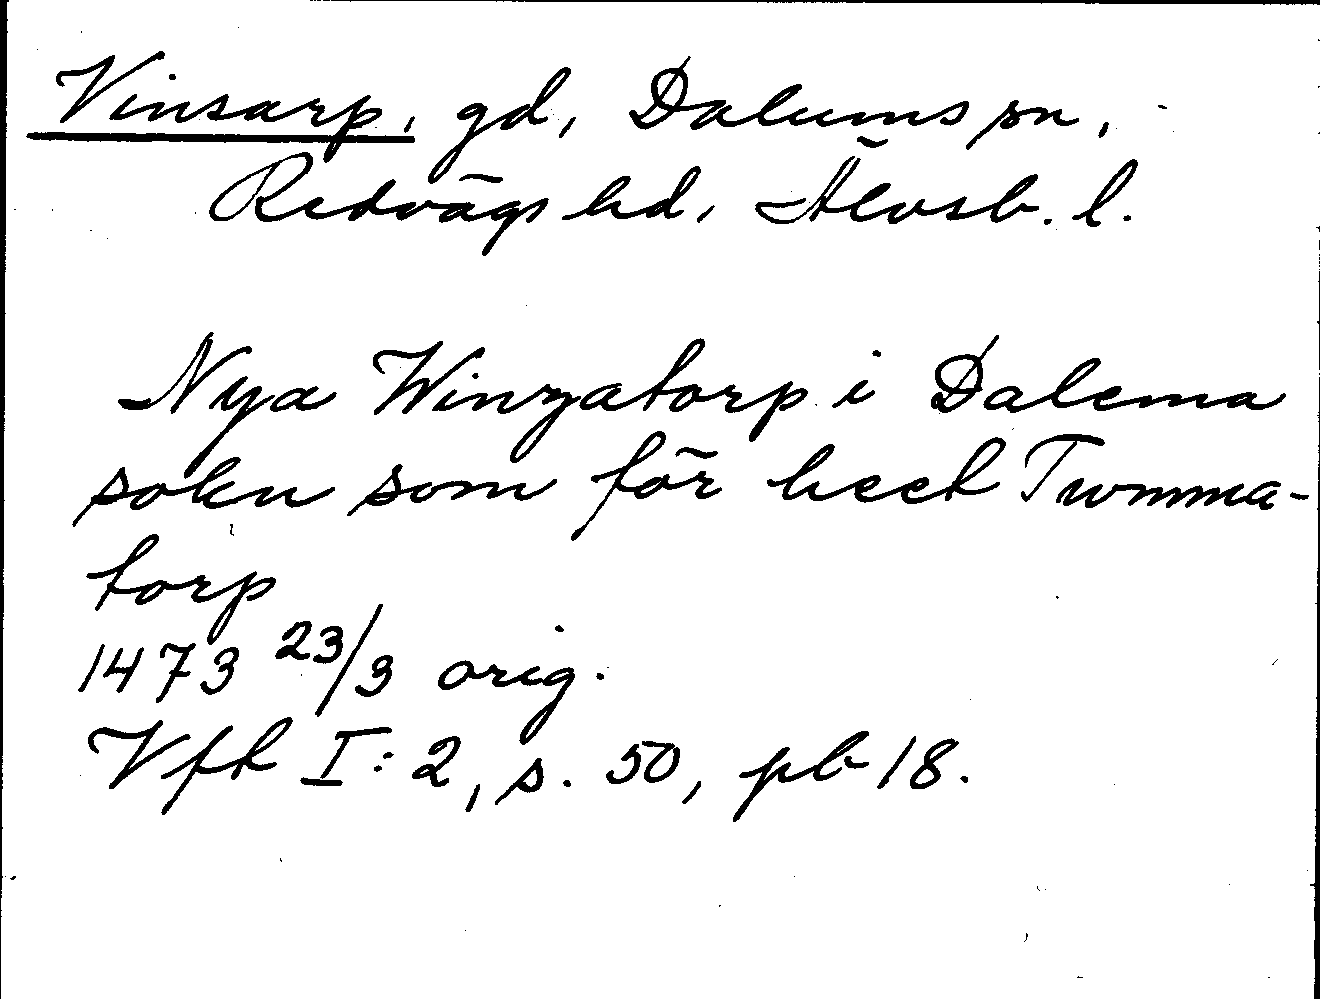 Vinsarp, gd, Dalums sn,
Redvägs hd, Älvsb. l.
Nya Winzatorp i Dalema
sokn som för heet Twmma-
torp
1473 23/3 orig.
Vft I: 2, s. 50, pb 18.